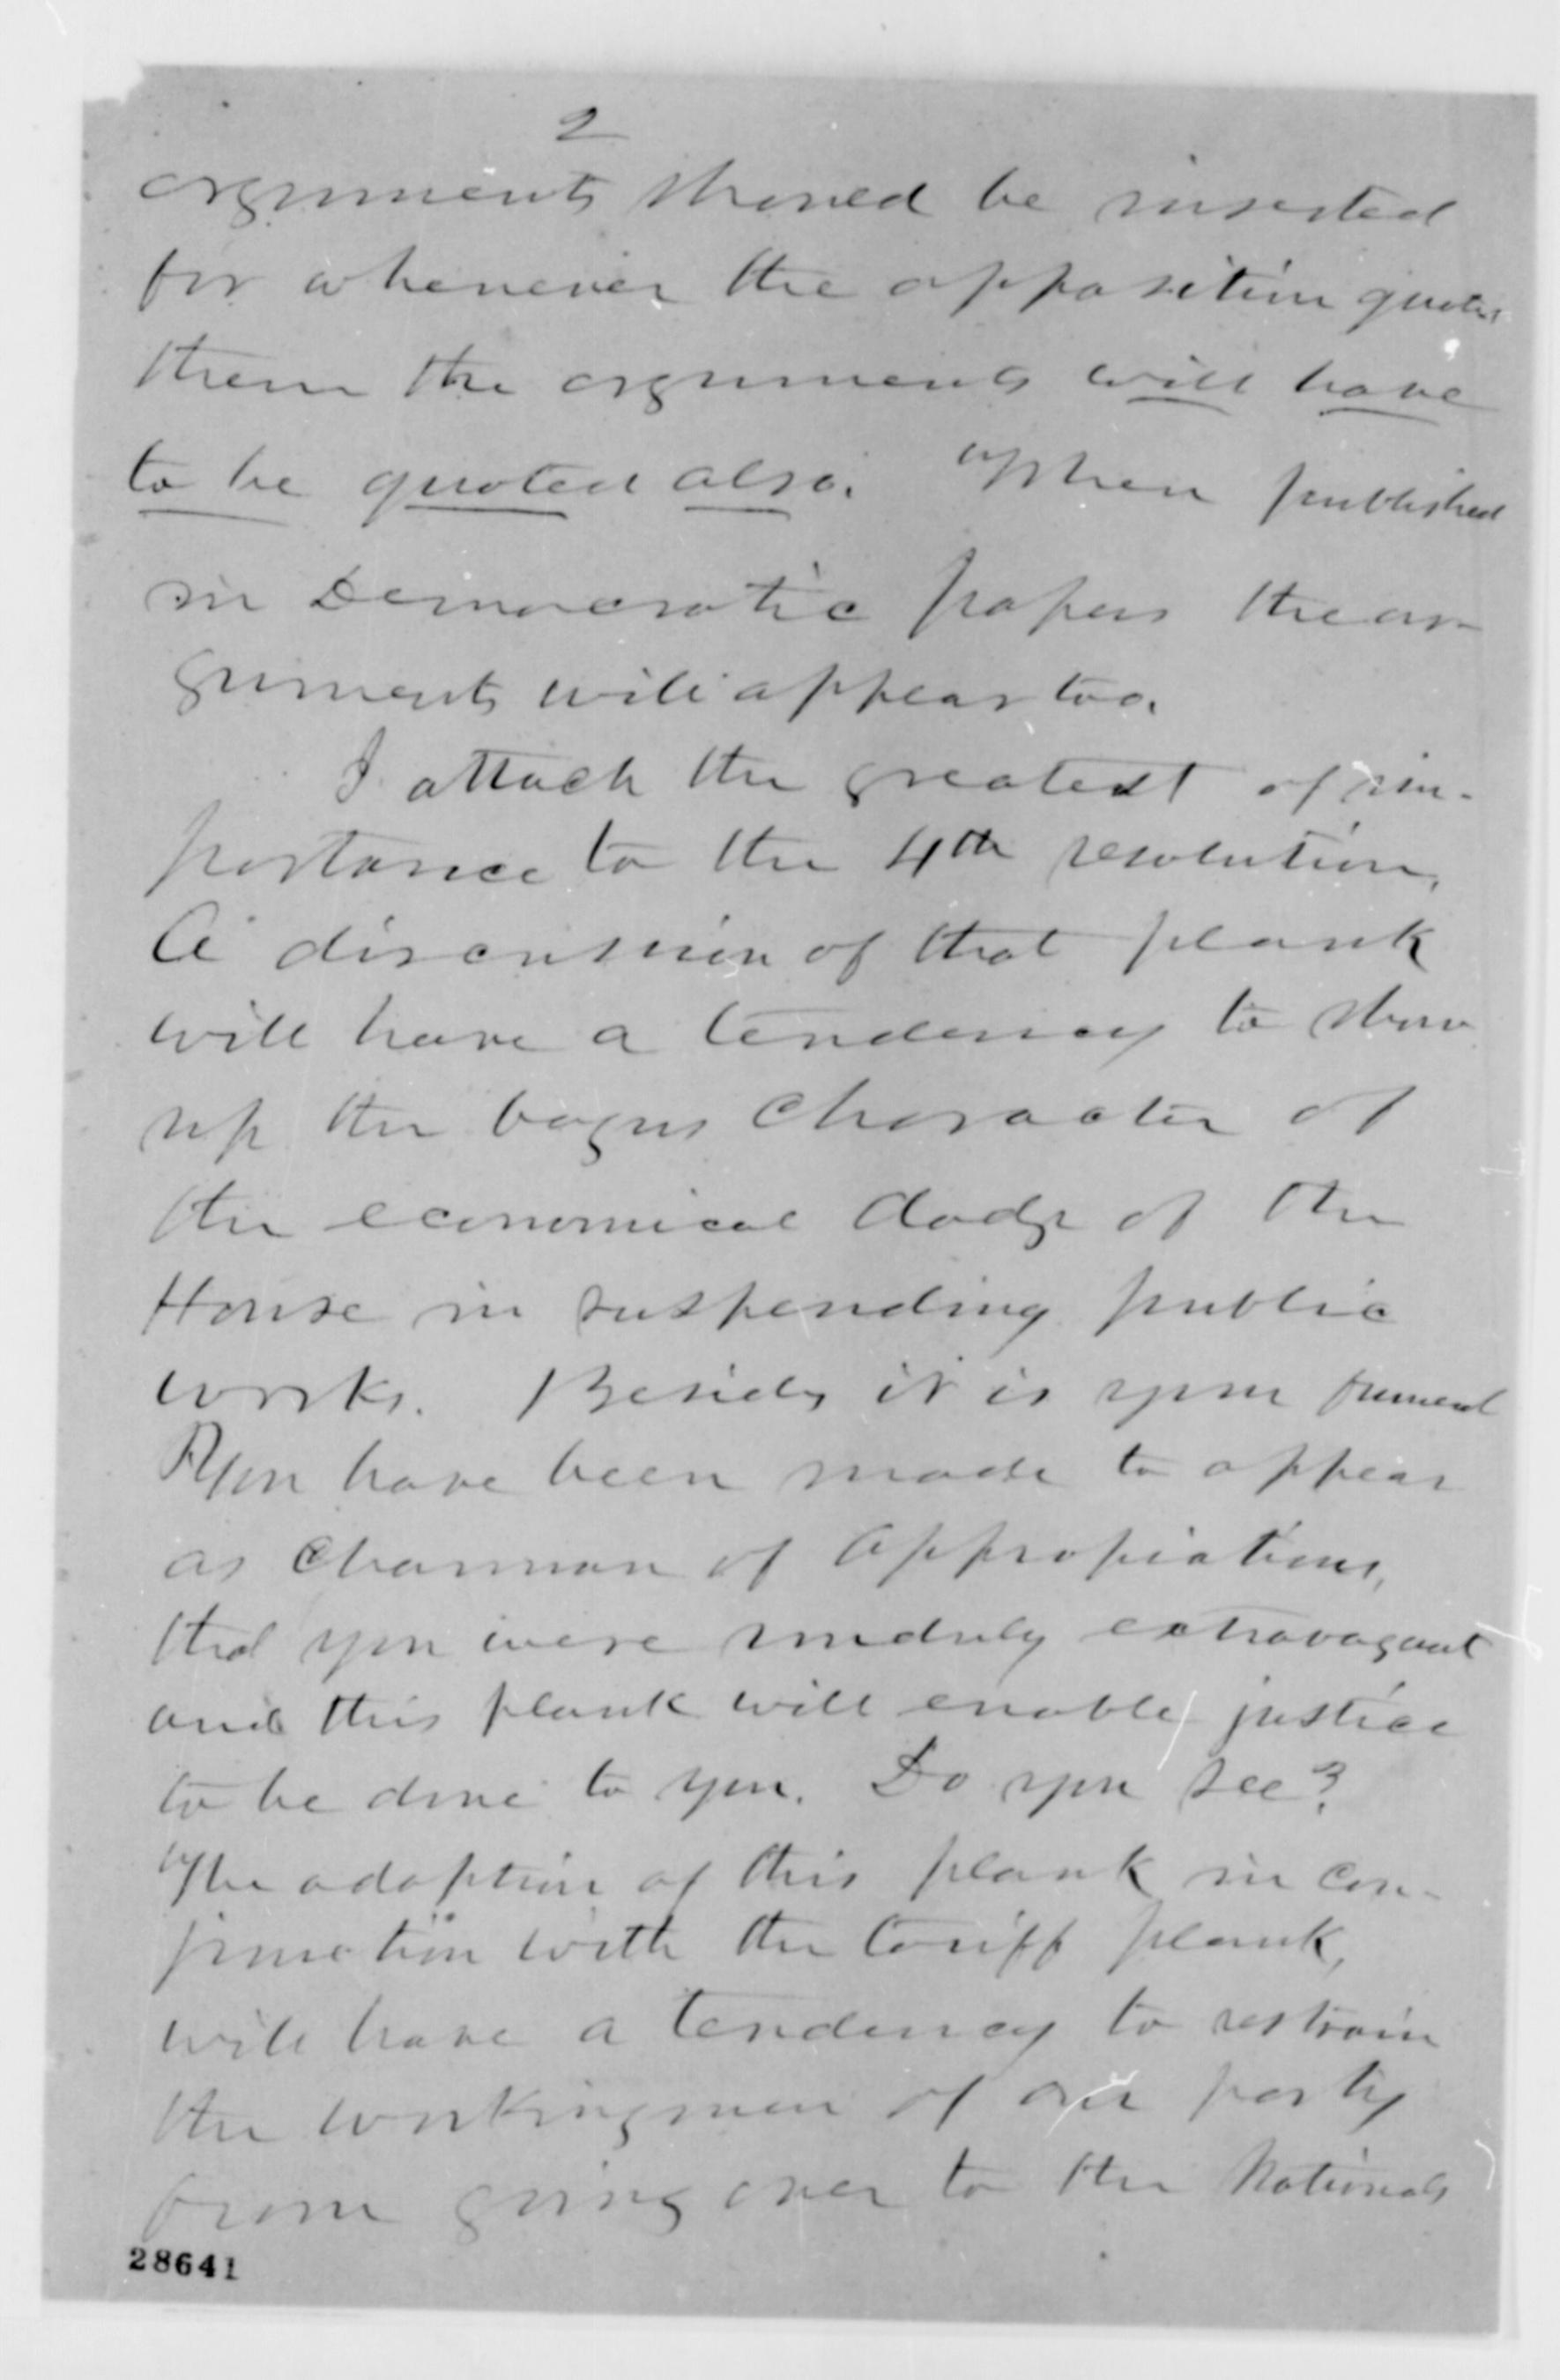 2
arguments should be inserted
for whenever the opposition quotes
them the arguments will have
to be quoted also. When published
in Democratic papers the ar-
guments will appear too.
I attach the greatest of im-
portance to the 4th resolution.
A discussion of that plank
will have a tendency to show
up the bogus character of
the economical dodge of the
House in suspending public
works. Besides it is your
You have been made to appear
as Chairman of Appropiations,
that you were unduly extravagant
and this plank will enable justice
to be done to you. Do you see?
The adoption of this plank in con-
junction with the tariff plank,
will have a tendency to restrain
the workingmen of our party
from going over to the Nationals
28641